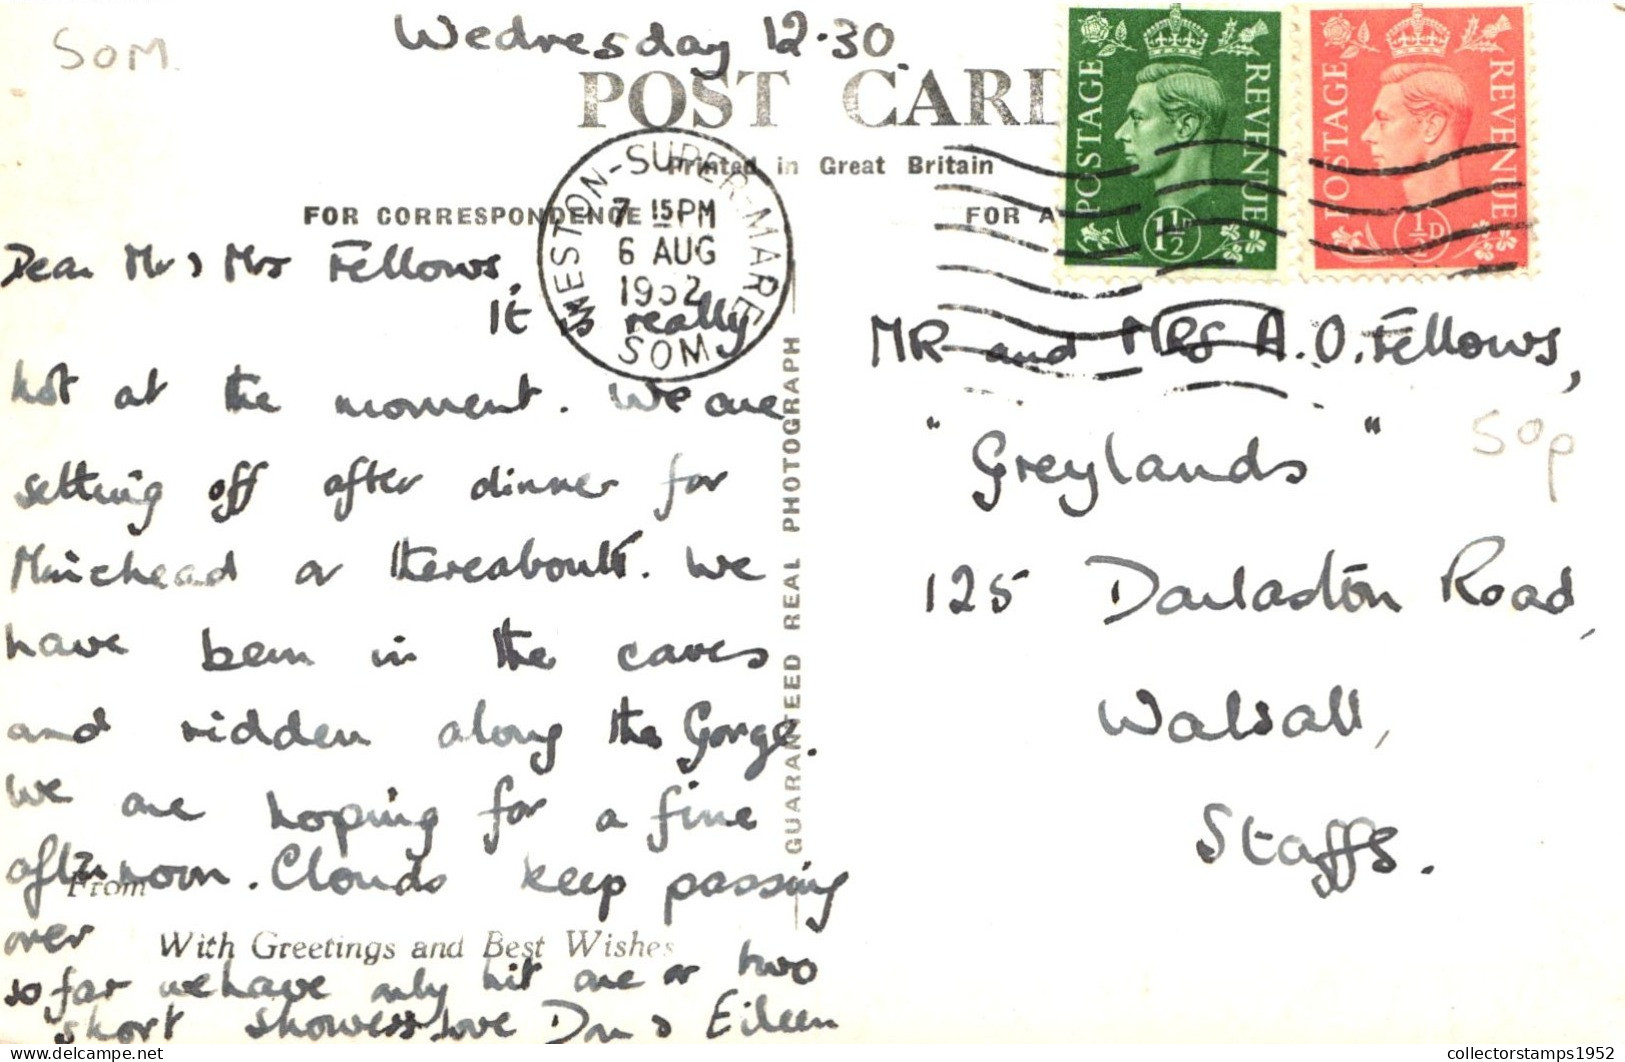 SOM
Wednesday 12.30
POST CARD
Printed in Great Britain
FOR CORRESPONDENCE
FOR A
POSTAGE REVENUE 1½D
POSTAGE REVENUE ½D
WESTON-SUPER-MARE
7 15 PM
6 AUG
1952
SOM
Dear Mr & Mrs Fellows,
It is really
hot at the moment. We are
setting off after dinner for
Minehead or thereabouts. We
have been in the caves
and ridden along the Gorge.
We are hoping for a fine
afternoon. Clouds keep passing
over
so far we have only hit one or two
short showers. Love Don & Eileen
From
With Greetings and Best Wishes
GUARANTEED REAL PHOTOGRAPH
MR and MRS A.O. Fellows,
"Greylands"
50p
125 Darlaston Road,
Walsall,
Staffs.
collectorstamps1952